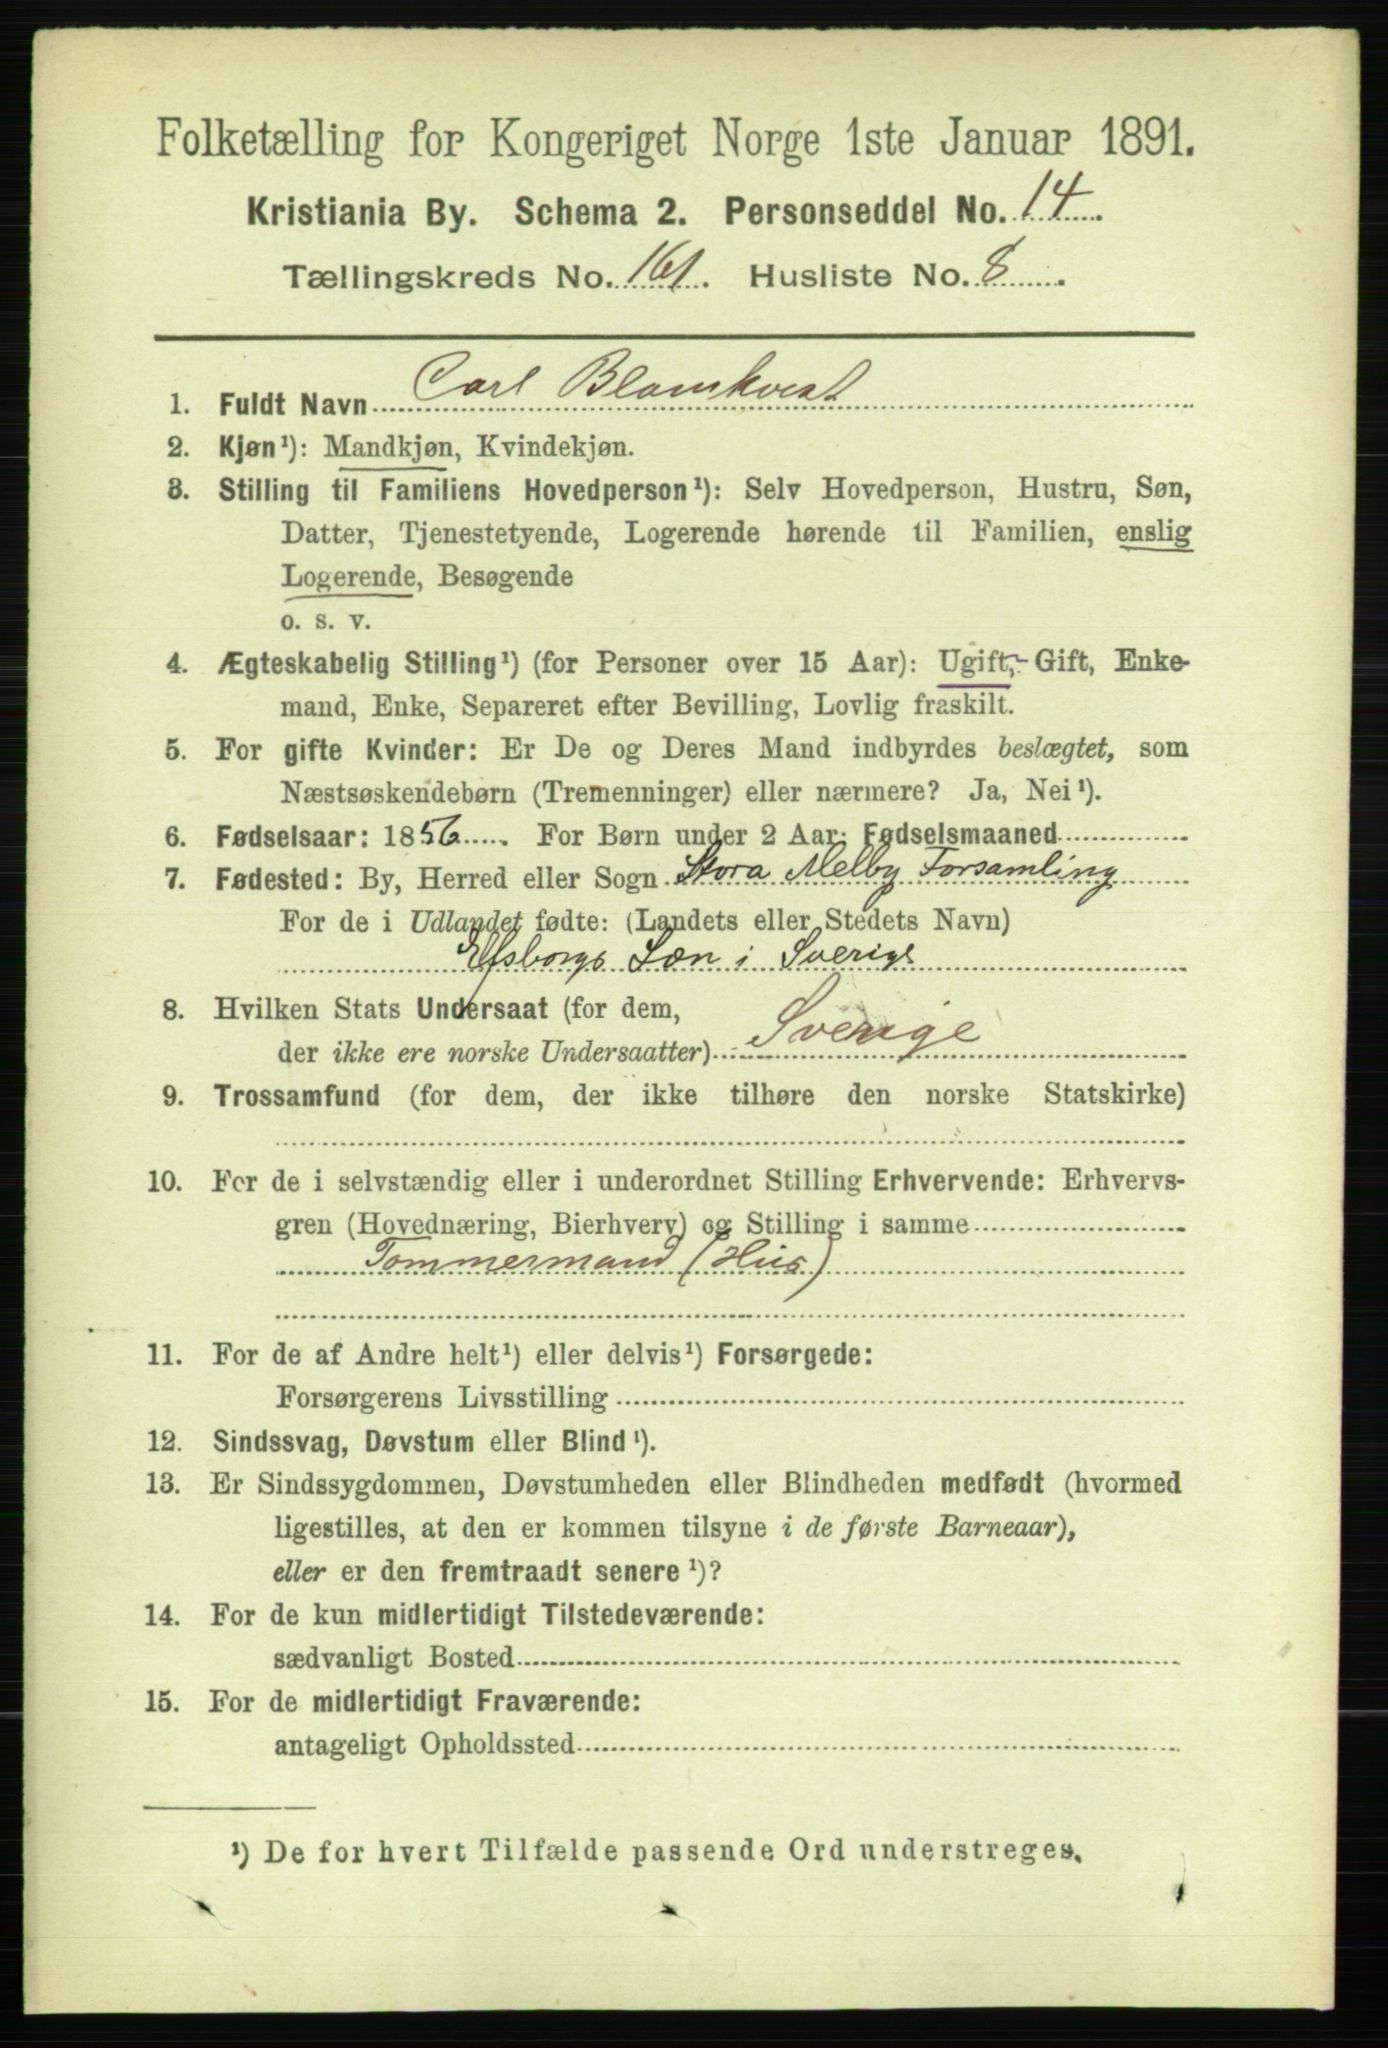 Folketælling for Kongeriget Norge 1ste Januar 1891.
Kristiania By. Schema 2. Personseddel No. 14.
Tællingskreds No. 161. Husliste No. 8.
1. Fuldt Navn Carl Blomkvest
2. Kjøn¹): Mandkjøn, Kvindekjøn.
3. Stilling til Familiens Hovedperson¹): Selv Hovedperson, Hustru, Søn,
Datter, Tjenestetyende, Logerende hørende til Familien, enslig
Logerende, Besøgende
o. s. v.
4. Ægteskabelig Stilling¹) (for Personer over 15 Aar): Ugift, Gift, Enke-
mand, Enke, Separeret efter Bevilling, Lovlig fraskilt.
5. For gifte Kvinder: Er De og Deres Mand indbyrdes beslægtet, som
Næstsøskendebørn (Tremenninger) eller nærmere? Ja, Nei¹).
6. Fødselsaar: 1856. For Børn under 2 Aar: Fødselsmaaned
7. Fødested: By, Herred eller Sogn Stora Melby Forsamling
For de i Udlandet fødte: (Landets eller Stedets Navn)
Elfsborgs Læn i Sverige
8. Hvilken Stats Undersaat (for dem,
der ikke ere norske Undersaatter) Sverige
9. Trossamfund (for dem, der ikke tilhøre den norske Statskirke)
10. For de i selvstændig eller i underordnet Stilling Erhvervende: Erhvervs-
gren (Hovednæring, Bierhverv) og Stilling i samme
Tømmermand (Hus)
11. For de af Andre helt¹) eller delvis¹) Forsørgede:
Forsørgerens Livsstilling
12. Sindssvag, Døvstum eller Blind¹).
13. Er Sindssygdommen, Døvstumheden eller Blindheden medfødt (hvormed
ligestilles, at den er kommen tilsyne i de første Barneaar),
eller er den fremtraadt senere¹)?
14. For de kun midlertidigt Tilstedeværende:
sædvanligt Bosted
15. For de midlertidigt Fraværende:
antageligt Opholdssted
¹) De for hvert Tilfælde passende Ord understreges.